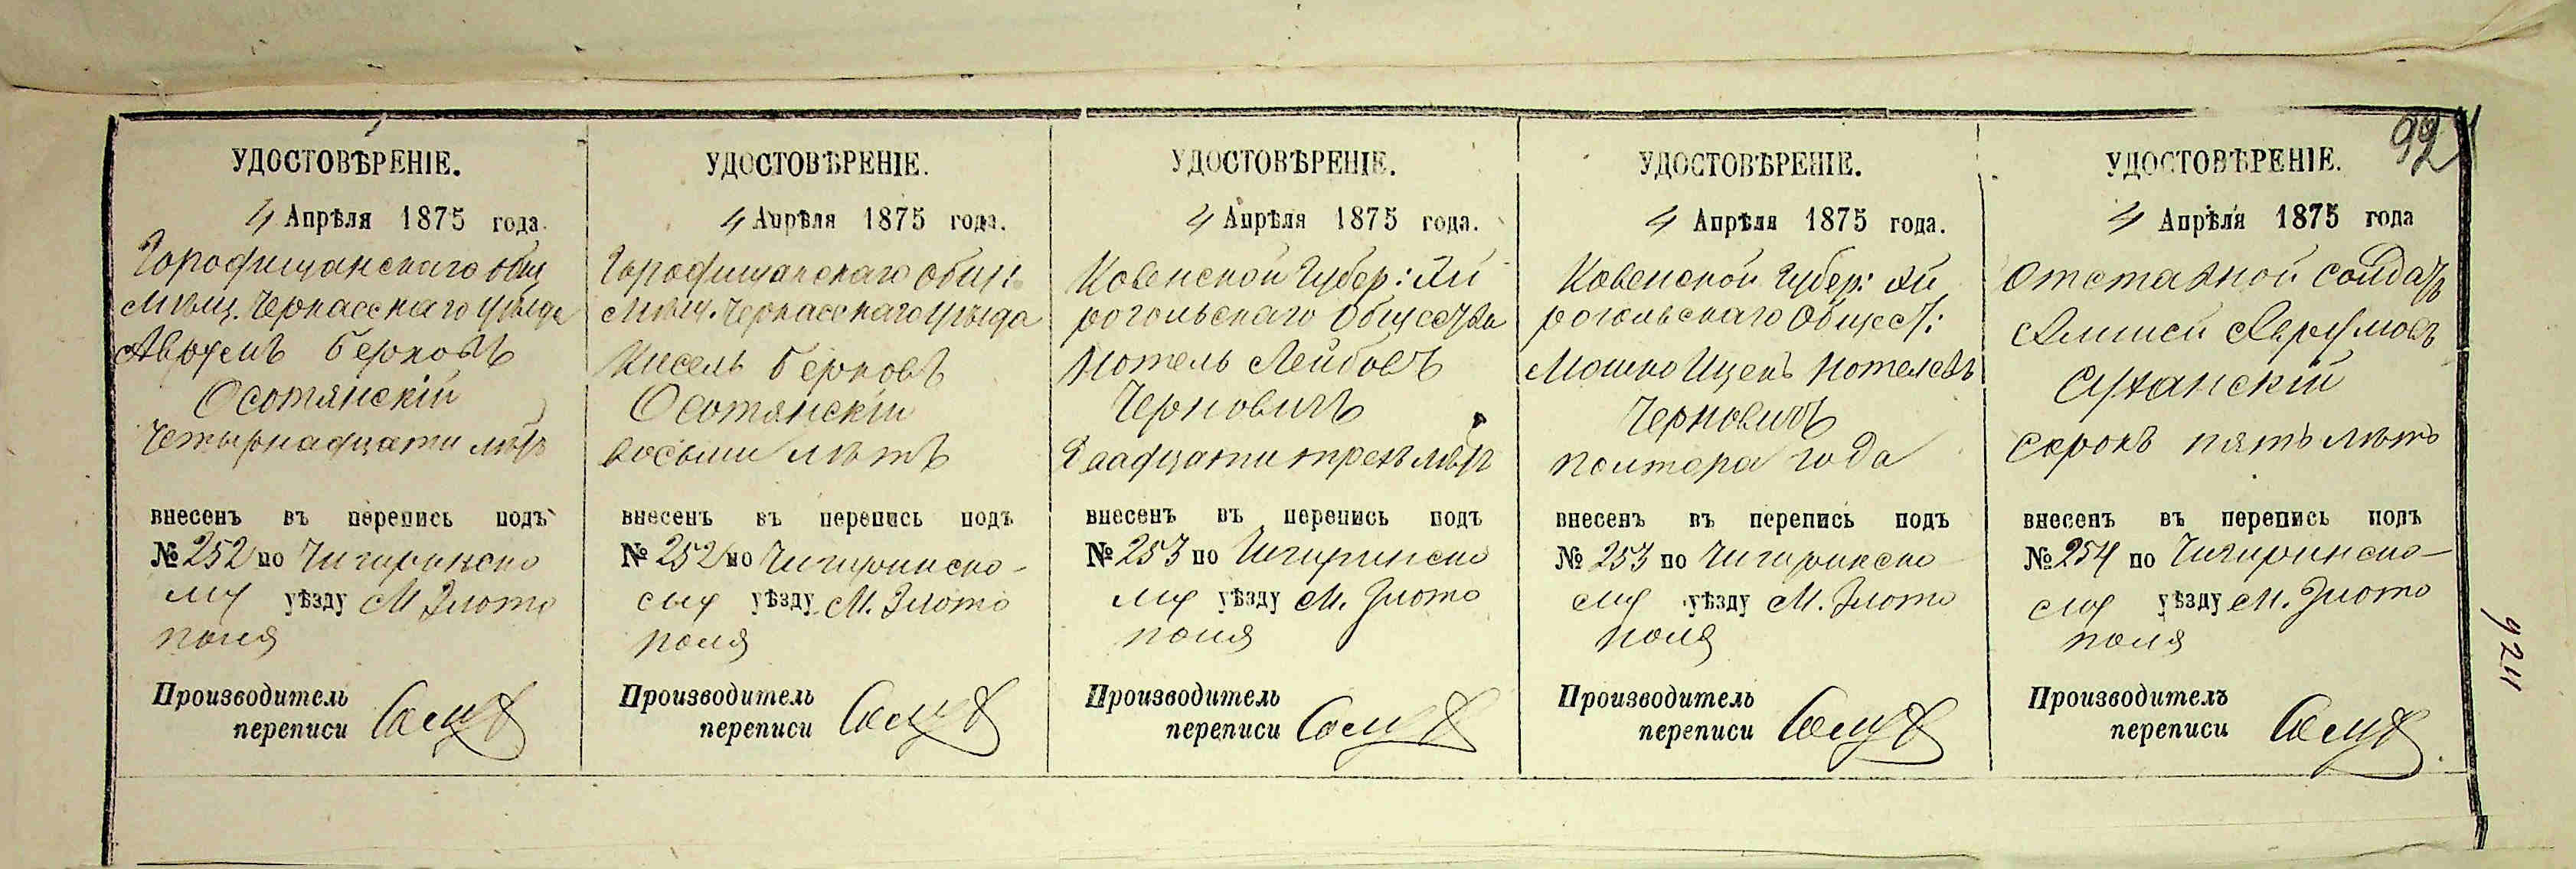 92
УДОСТОВѢРЕНІЕ.
4 Апрѣля 1875 года.
Городищанскаго общ
мѣщ. Черкасскаго уѣзда
Берковъ
Осотянскій
Четырнадцати лѣтъ
внесенъ въ перепись подъ
№ 252 по Чигиринско
му уѣзду М. Злото
поля
Производитель
переписи
УДОСТОВѢРЕНІЕ.
4 Апрѣля 1875 года.
Городищанскаго общ:
мѣщ. Черкасскаго уѣзда
Кисель Берковъ
Осотянскій
восьми лѣтъ
внесенъ въ перепись подъ
№ 252 по Чигиринско-
му уѣзду М. Злото
поля
Производитель
переписи
УДОСТОВѢРЕНІЕ.
4 Апрѣля 1875 года.
Ковенской Губер: Ай
рогольскаго Общества
Мотель Лейбовъ
Черновичъ
Двадцати трехъ лѣтъ
внесенъ въ перепись подъ
№ 253 по Чигиринско
му уѣзду М. Злото
поля
Производитель
переписи
УДОСТОВѢРЕНІЕ.
4 Апрѣля 1875 года.
Ковенской Губер: Ай
рогольскаго Общест:
Мошко Ицекъ Мотелевъ
Черновичъ
полтора года
внесенъ въ перепись подъ
№ 253 по Чигиринско
му уѣзду М. Злото
поля
Производитель
переписи
УДОСТОВѢРЕНІЕ.
4 Апрѣля 1875 года
Отставной солдатъ
Суханскій
сорокъ пять лѣтъ
внесенъ въ перепись подъ
№ 254 по Чигиринско-
му уѣзду М. Злото
поля
Производитель
переписи